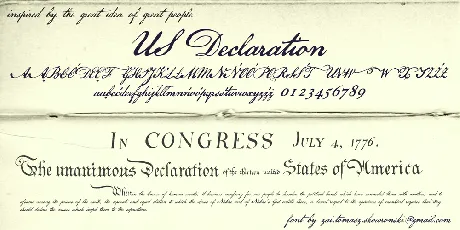 inspired by the great idea of great people
US Declaration
0123456789
IN CONGRESS JULY 4, 1776.
The unanimous Declaration of the thirteen united States of America
When in the course of human events, it becomes necessary for one people to dissolve the political bands which have connected them with another, and to
assume among the powers of the earth, the separate and equal station to which the Laws of Nature and of Nature's God entitle them, a decent respect to the opinions of mankind requires that they
should declare the causes which impel them to the separation.
font by zai.tomasz.skowronski@gmail.com